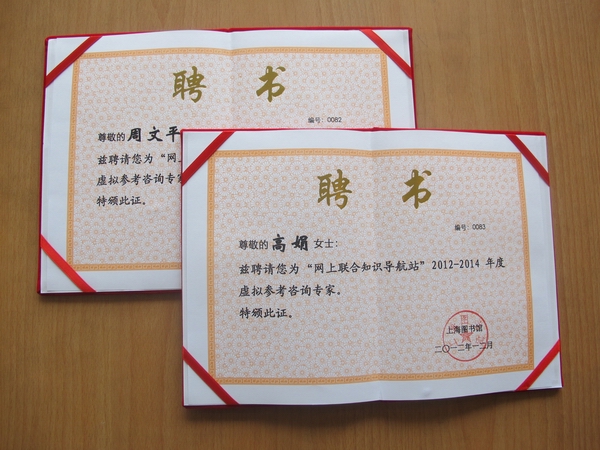 聘书
编号：0082
尊敬的周文平
兹聘请您为“网上
虚拟参考咨询专家
特颁此证。
聘书
编号：0083
尊敬的高娟女士：
兹聘请您为“网上联合知识导航站”2012-2014 年度
虚拟参考咨询专家。
特颁此证。
上海图书馆
二〇一二年一二月